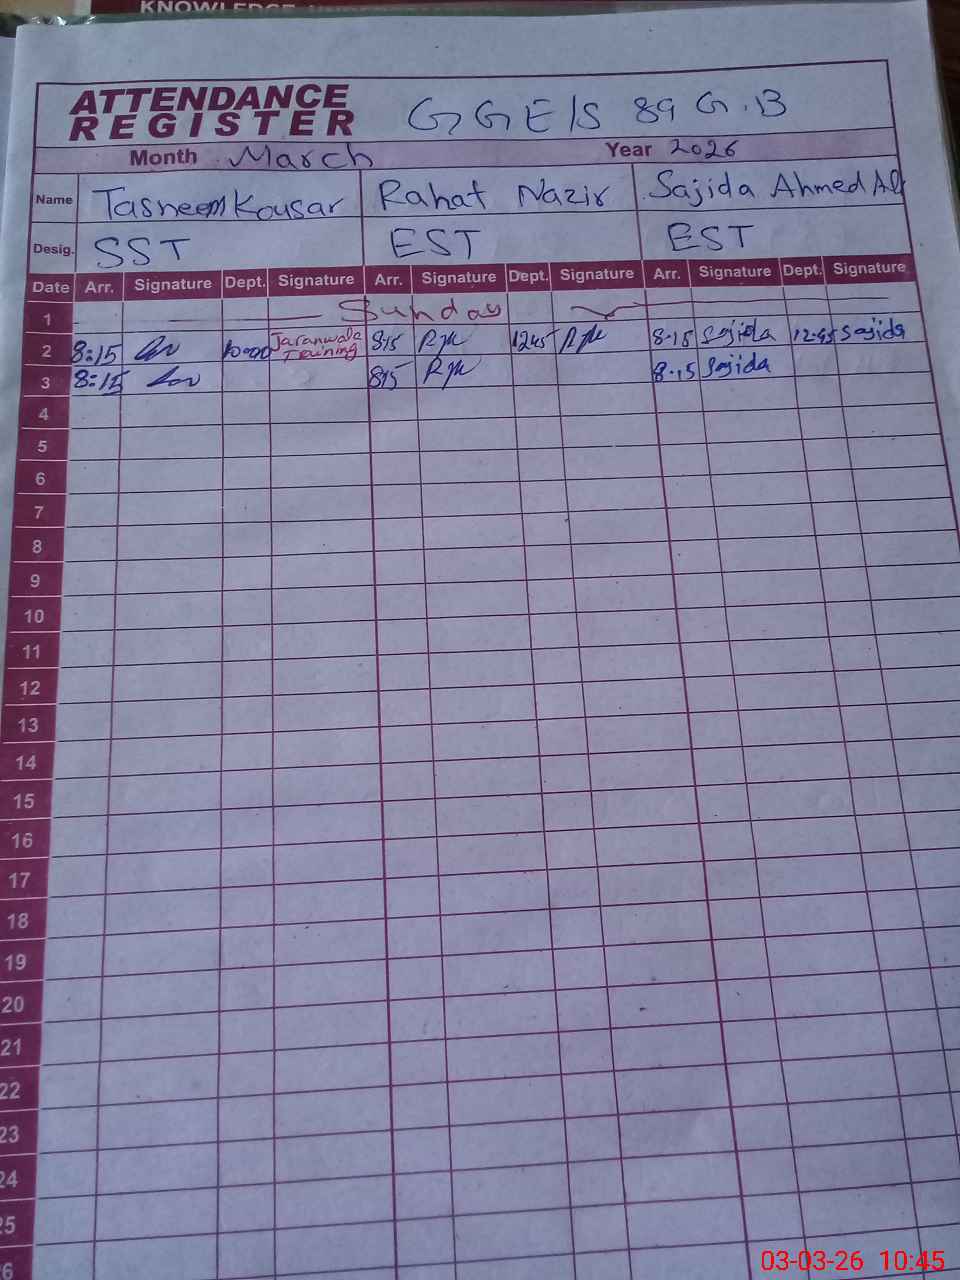 KNOWLEDGE
ATTENDANCE
REGISTER
GGE/S 89 G.B
Month March Year 2026
Name Tasneem Kousar Rahat Nazir Sajida Ahmed Ali
Desig. SST EST EST
Date Arr. Signature Dept. Signature Arr. Signature Dept. Signature Arr. Signature Dept. Signature
1 Sunday
2 8:15 10:00 Jaranwala Training 8:15 1245 8.15 Sajida 12:45 Sajida
3 8:15 815 8.15 Sajida
4
5
6
7
8
9
10
11
12
13
14
15
16
17
18
19
20
21
22
23
24
25
03-03-26 10:45